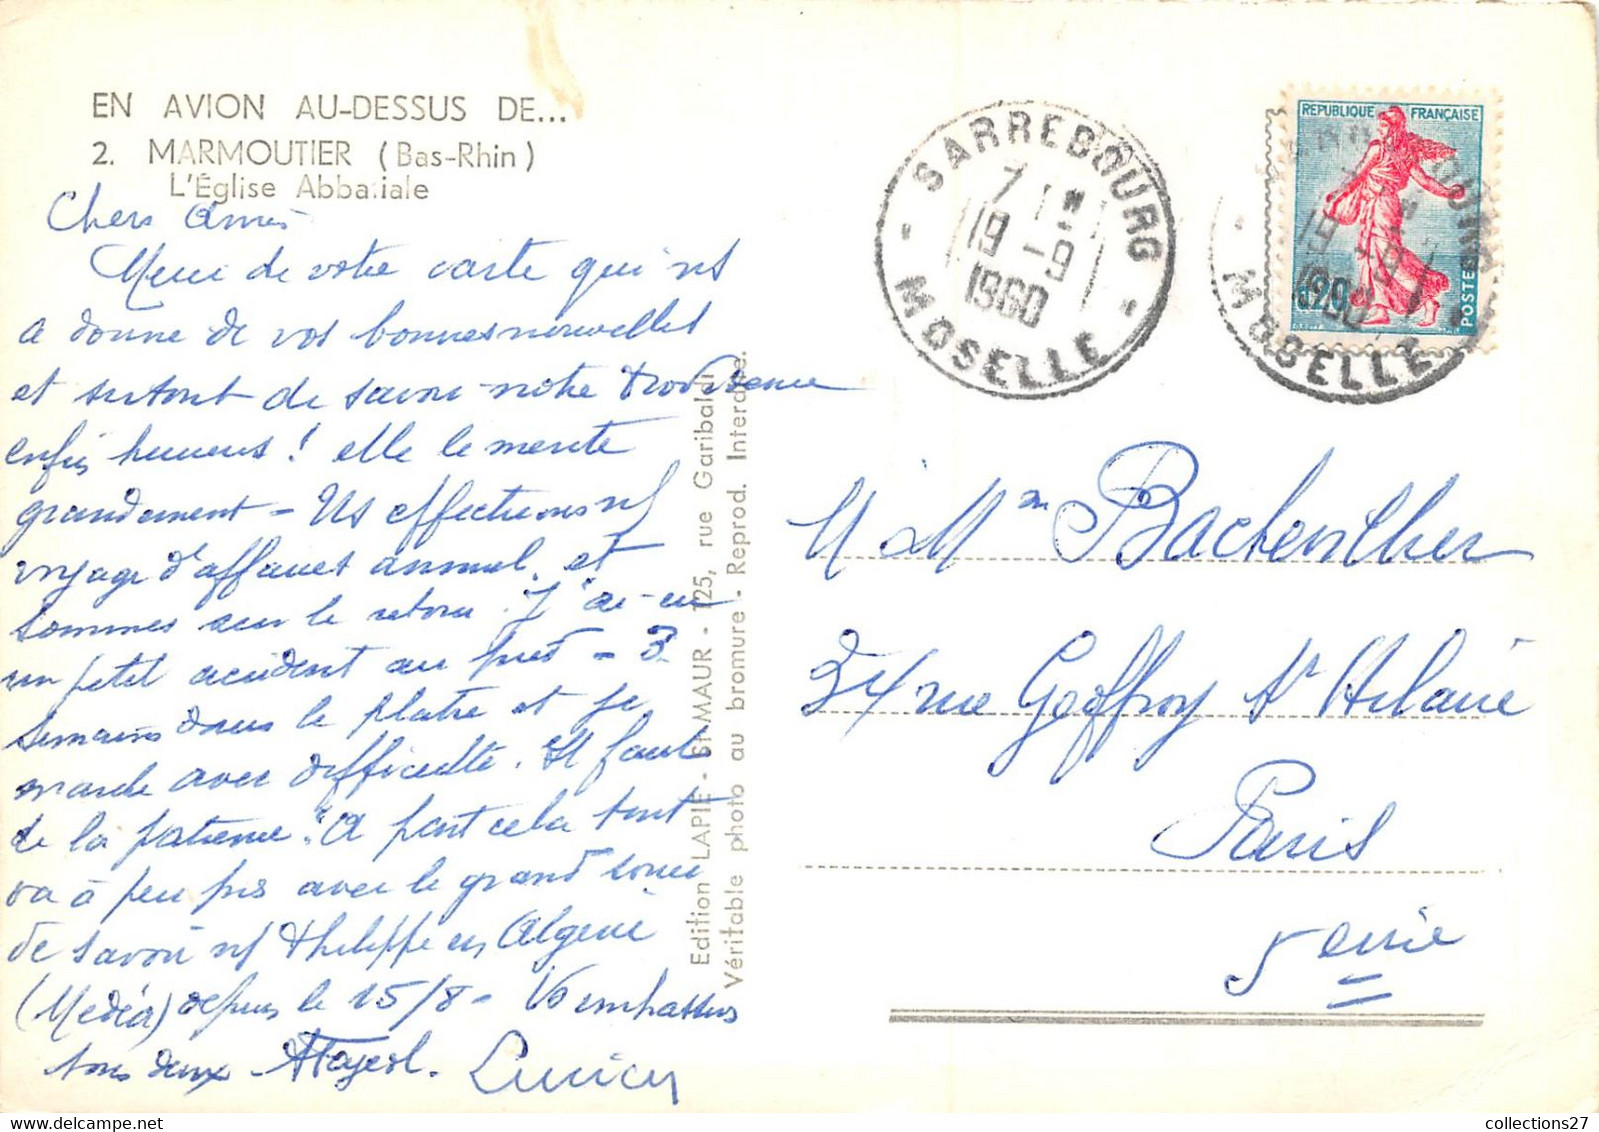 EN AVION AU-DESSUS DE...
2. MARMOUTIER (Bas-Rhin)
L'Église Abbatiale
Chers Amis
Merci de votre carte qui ns
a donne de vos bonnes nouvelles
et surtout de savoir notre
enfin heureuse! elle le merite
grandement - Ns effectuons n/
voyage d'affaires annuel. et
sommes sur le retour. J'ai eu
un petit accident au pied - 3
semaines dans le platre et je
marche avec difficulté. Il faut
de la patience. A part cela tout
va à peu près avec le grand souci
de savoir n/ Philippe en Algerie
(Medéa) depuis le 15/8 - Vs embrassons
tous deux Lucien
Edition LAPIE - ST-MAUR - 125, rue Garibaldi
Véritable photo au bromure - Reprod. Interdite.
SARREBOURG
7H
19-9
1960
MOSELLE
REPUBLIQUE FRANÇAISE
0,20
POSTES
MOSELLE
M Mme
34 rue Geoffroy St Hilaire
Paris
5eme
collections27